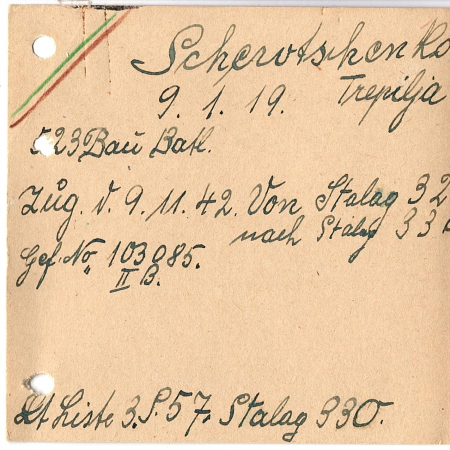 Scherotschenko
9. 1. 19. Trepilja
523 Bau Batl.
Zug. v. 9. 11. 42. Von Stalag 32
nach Stalag 33
Gef. No. 103085.
II B.
Lt Liste 3. S. 57. Stalag 330.